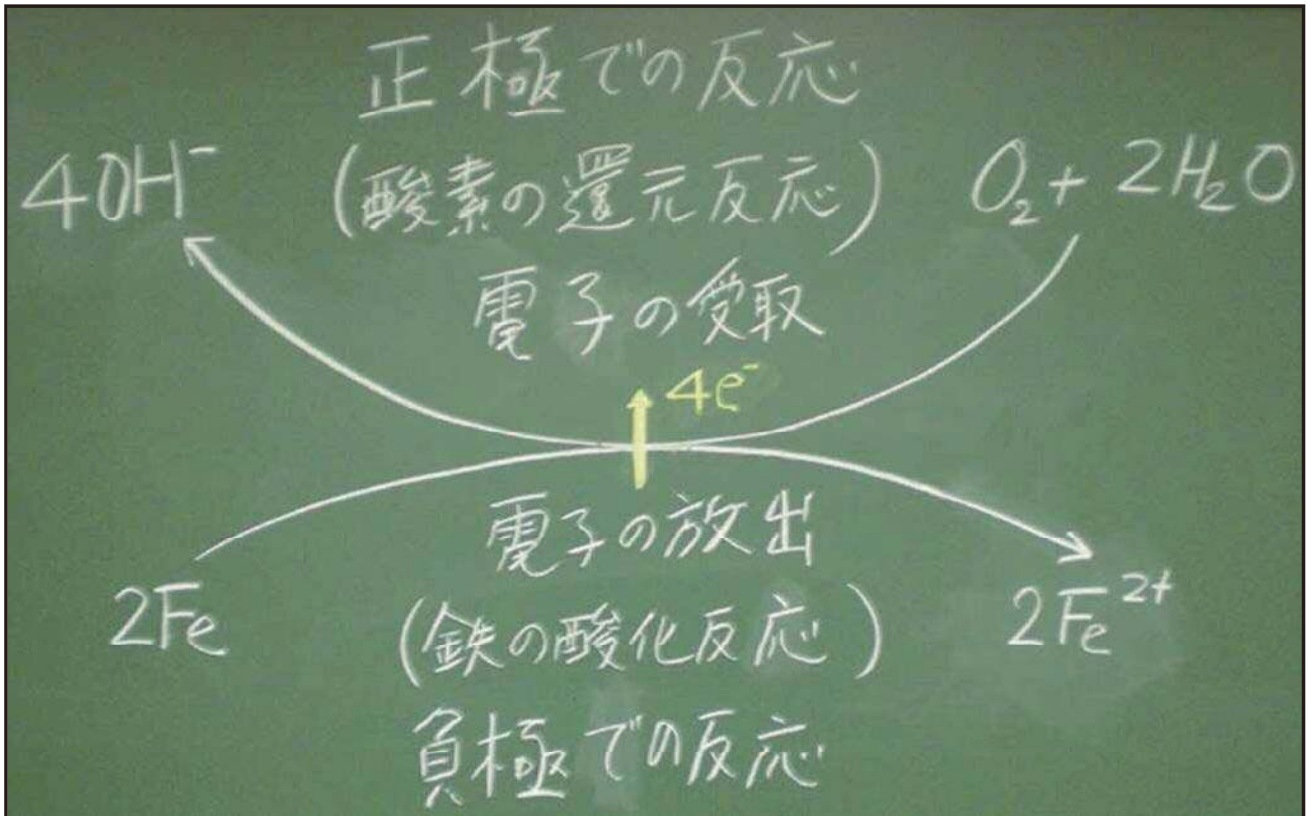 正極での反応
4OH⁻ (酸素の還元反応) O₂ + 2H₂O
電子の受取
4e⁻
電子の放出
2Fe (鉄の酸化反応) 2Fe²⁺
負極での反応